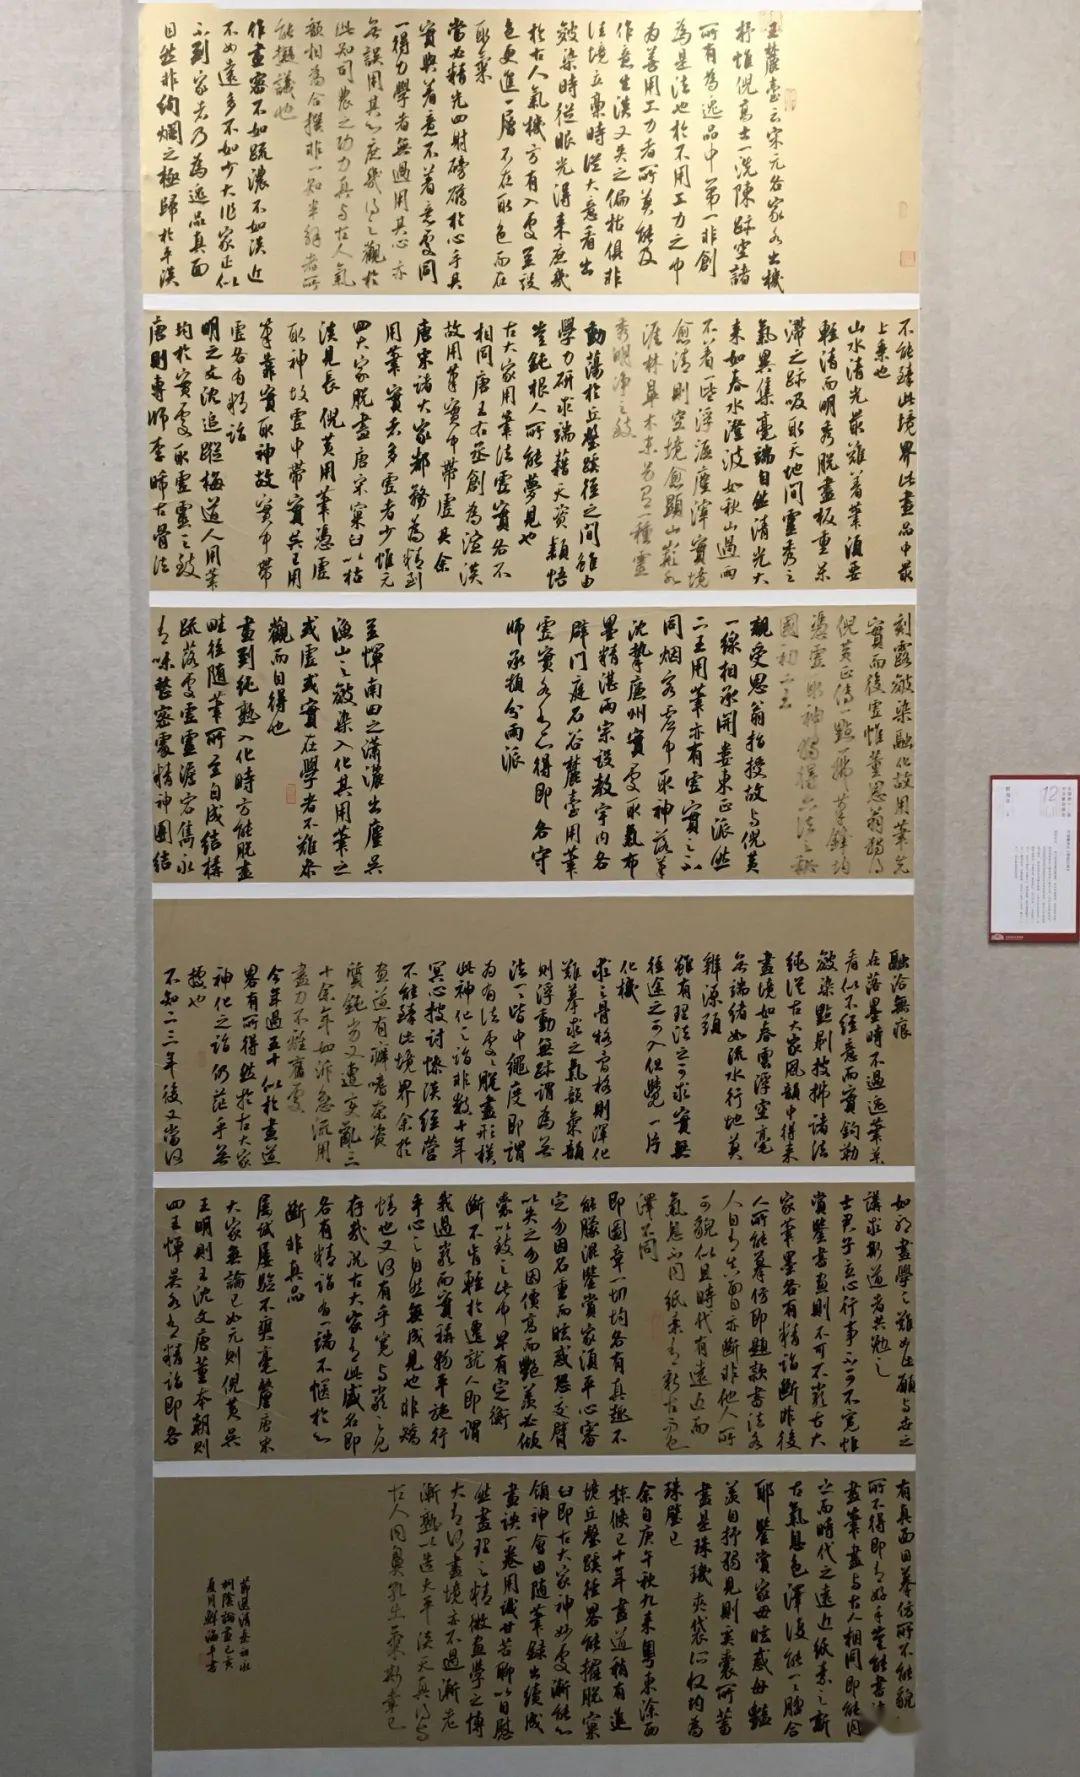 王麓臺云宋元各家各出機
杼惟倪高士一洗陳跡空諸
所有為逸品中第一非創
為是法也於不用工力之中
為善用工力者所莫能及
作意生淡又失之偏枯俱非
法境立稾時從大意看出
皴染時從眼光得來庶幾
於古人氣機方有入處至設
色更進一層不在取色而在
取氣
當必精光四射磅礴於心手其
實與著意不著意處同
一得力學者無過用其心亦
無誤用其心庶幾得之觀於
此知司農之功力真與古人氣
韻相為合撰非一知半解者所
能擬議也
作畫密不如疏濃不如淡近
不如遠多不如少大作家正似
不到家者乃為逸品真面
目然非絢爛之極歸於平淡
不能臻此境界此畫品中最
上乘也
山水清光最難著筆須要
輕清而明秀脫盡板重呆
滯之跡吸取天地間靈秀之
氣異集毫端自然清光大
來如春水澄波如秋山過雨
不著一些浮滬塵滓實境
愈清則空境愈顯山巔水
涯林皐木末另具一種靈
秀明淨之致
動蕩於丘壑蹊徑之間雖由
學力研求端藉天資穎悟
豈鈍根人所能夢見也
古大家用筆法虛實各不
相同唐王右丞創為渲淡
故用筆實中帶虛其余
唐宋諸大家都務為精到
用筆實者多虛者少惟元
四大家脫盡唐宋窠臼以枯
淡見長倪黃用筆憑虛
取神故虛中帶實吳王用
筆靠實取神故實中帶
虛各有精詣
明之文沈追蹤梅道人用筆
均於實處取虛靈之致
唐則專師李晞古骨法
刻露皴染融化故用筆先
實而後虛惟董思翁獨得
倪黃正傳一點一拂筆鋒均
憑虛取神獨得六法之秘
國初二王
親受思翁指授故與倪黃
一線相承開婁東正派然
二王用筆亦有虛實之不
同烟客虛中取神落筆
沈摯廉州實處取氣布
墨精湛兩宗設教宇內各
辟門庭石谷麓臺用筆
虛實各有心得即各守
師承頗分兩派
至惲南田之瀟灑出塵吳
漁山之皴染入化其用筆之
或虛或實在學者不難參
觀而自得也
畫到純熟入化時方能脫盡
畦徑隨筆所至自成結構
疏落處虛靈澹宕雋永
有味整密處精神團結
融洽無痕
在落墨時不過逸筆草
看似不經意而實鉤勒
皴染點剔披拂諸法
純從古大家風韻中得來
畫境如春雲浮空毫
無端緒如流水行地莫
辨源頭
雖有理法之可求實無
徑途之可入但覺一片
化機
求之骨格骨格則渾化
難摹求之氣韻氣韻
則浮動無跡謂為無
法一一皆中繩度即謂
為有法處處脫盡形模
此神化之詣非數十年
冥心披討慘淡經營
不能臻此境界余於
畫道有癖嗜奈資
質鈍劣又遭變亂三
十余年如泝急流用
盡力不離舊處
今年過五十似於畫道
畧有所得然於古大家
神化之詣仍茫乎無
據也
不知二三年後又當何
如耶畫學之難如此願與世之
講求斯道者共勉之
士君子立心行事不可不寬恕
賞鑒書畫則不可不嚴古大
家筆墨各有精詣斷非後
人所能摹仿即題款書法各
人自有真面目亦斷非他人所
可貌似且時代有遠近而
氣息不同紙素有新古而色
澤不同
即圖章一切均各有真趣不
能朦混鑒賞家須平心審
定勿因名重而眩惑恐交臂
以失之勿因價高而艷羨必傾
囊以致之此中早有定衡
斷不肯輕於遷就人即謂
我過嚴而實稱物平施行
乎心之自然無成見也非矯
情也又何有乎寬與嚴之見
存哉況古大家享此盛名即
各有精詣為一端不愜於心
斷非真品
屢試屢驗不爽毫釐唐宋
大家無論已如元則倪黃吳
王明則王沈文唐董本朝則
四王惲吳各有精詣即各
有真面目摹仿所不能貌
所不得即有好手豈能書法
畫筆盡與古人相同即能同
之而時代之遠近紙素之新
古氣息色澤復能一一膍合
耶鑒賞家毋眩惑毋豔
羨自抒獨見則奚囊所蓄
盡是珠璣夾袋所收均為
珠璧已
余自庚午秋九來粵東涂而
稌候已十年畫道稍有進
境丘壑蹊徑畧能擺脫窠
臼即古大家神妙處漸能心
領神會因隨筆錄出績成
畫訣一卷用誠甘苦聊以自慰
然畫理之精微畫學之博
大有何盡境亦不過漸老
漸熟以造夫平淡天真得與
古人同鼻孔出氣斯幸已
節選清秦祖永
桐陰論畫己亥
夏月鮮海平書